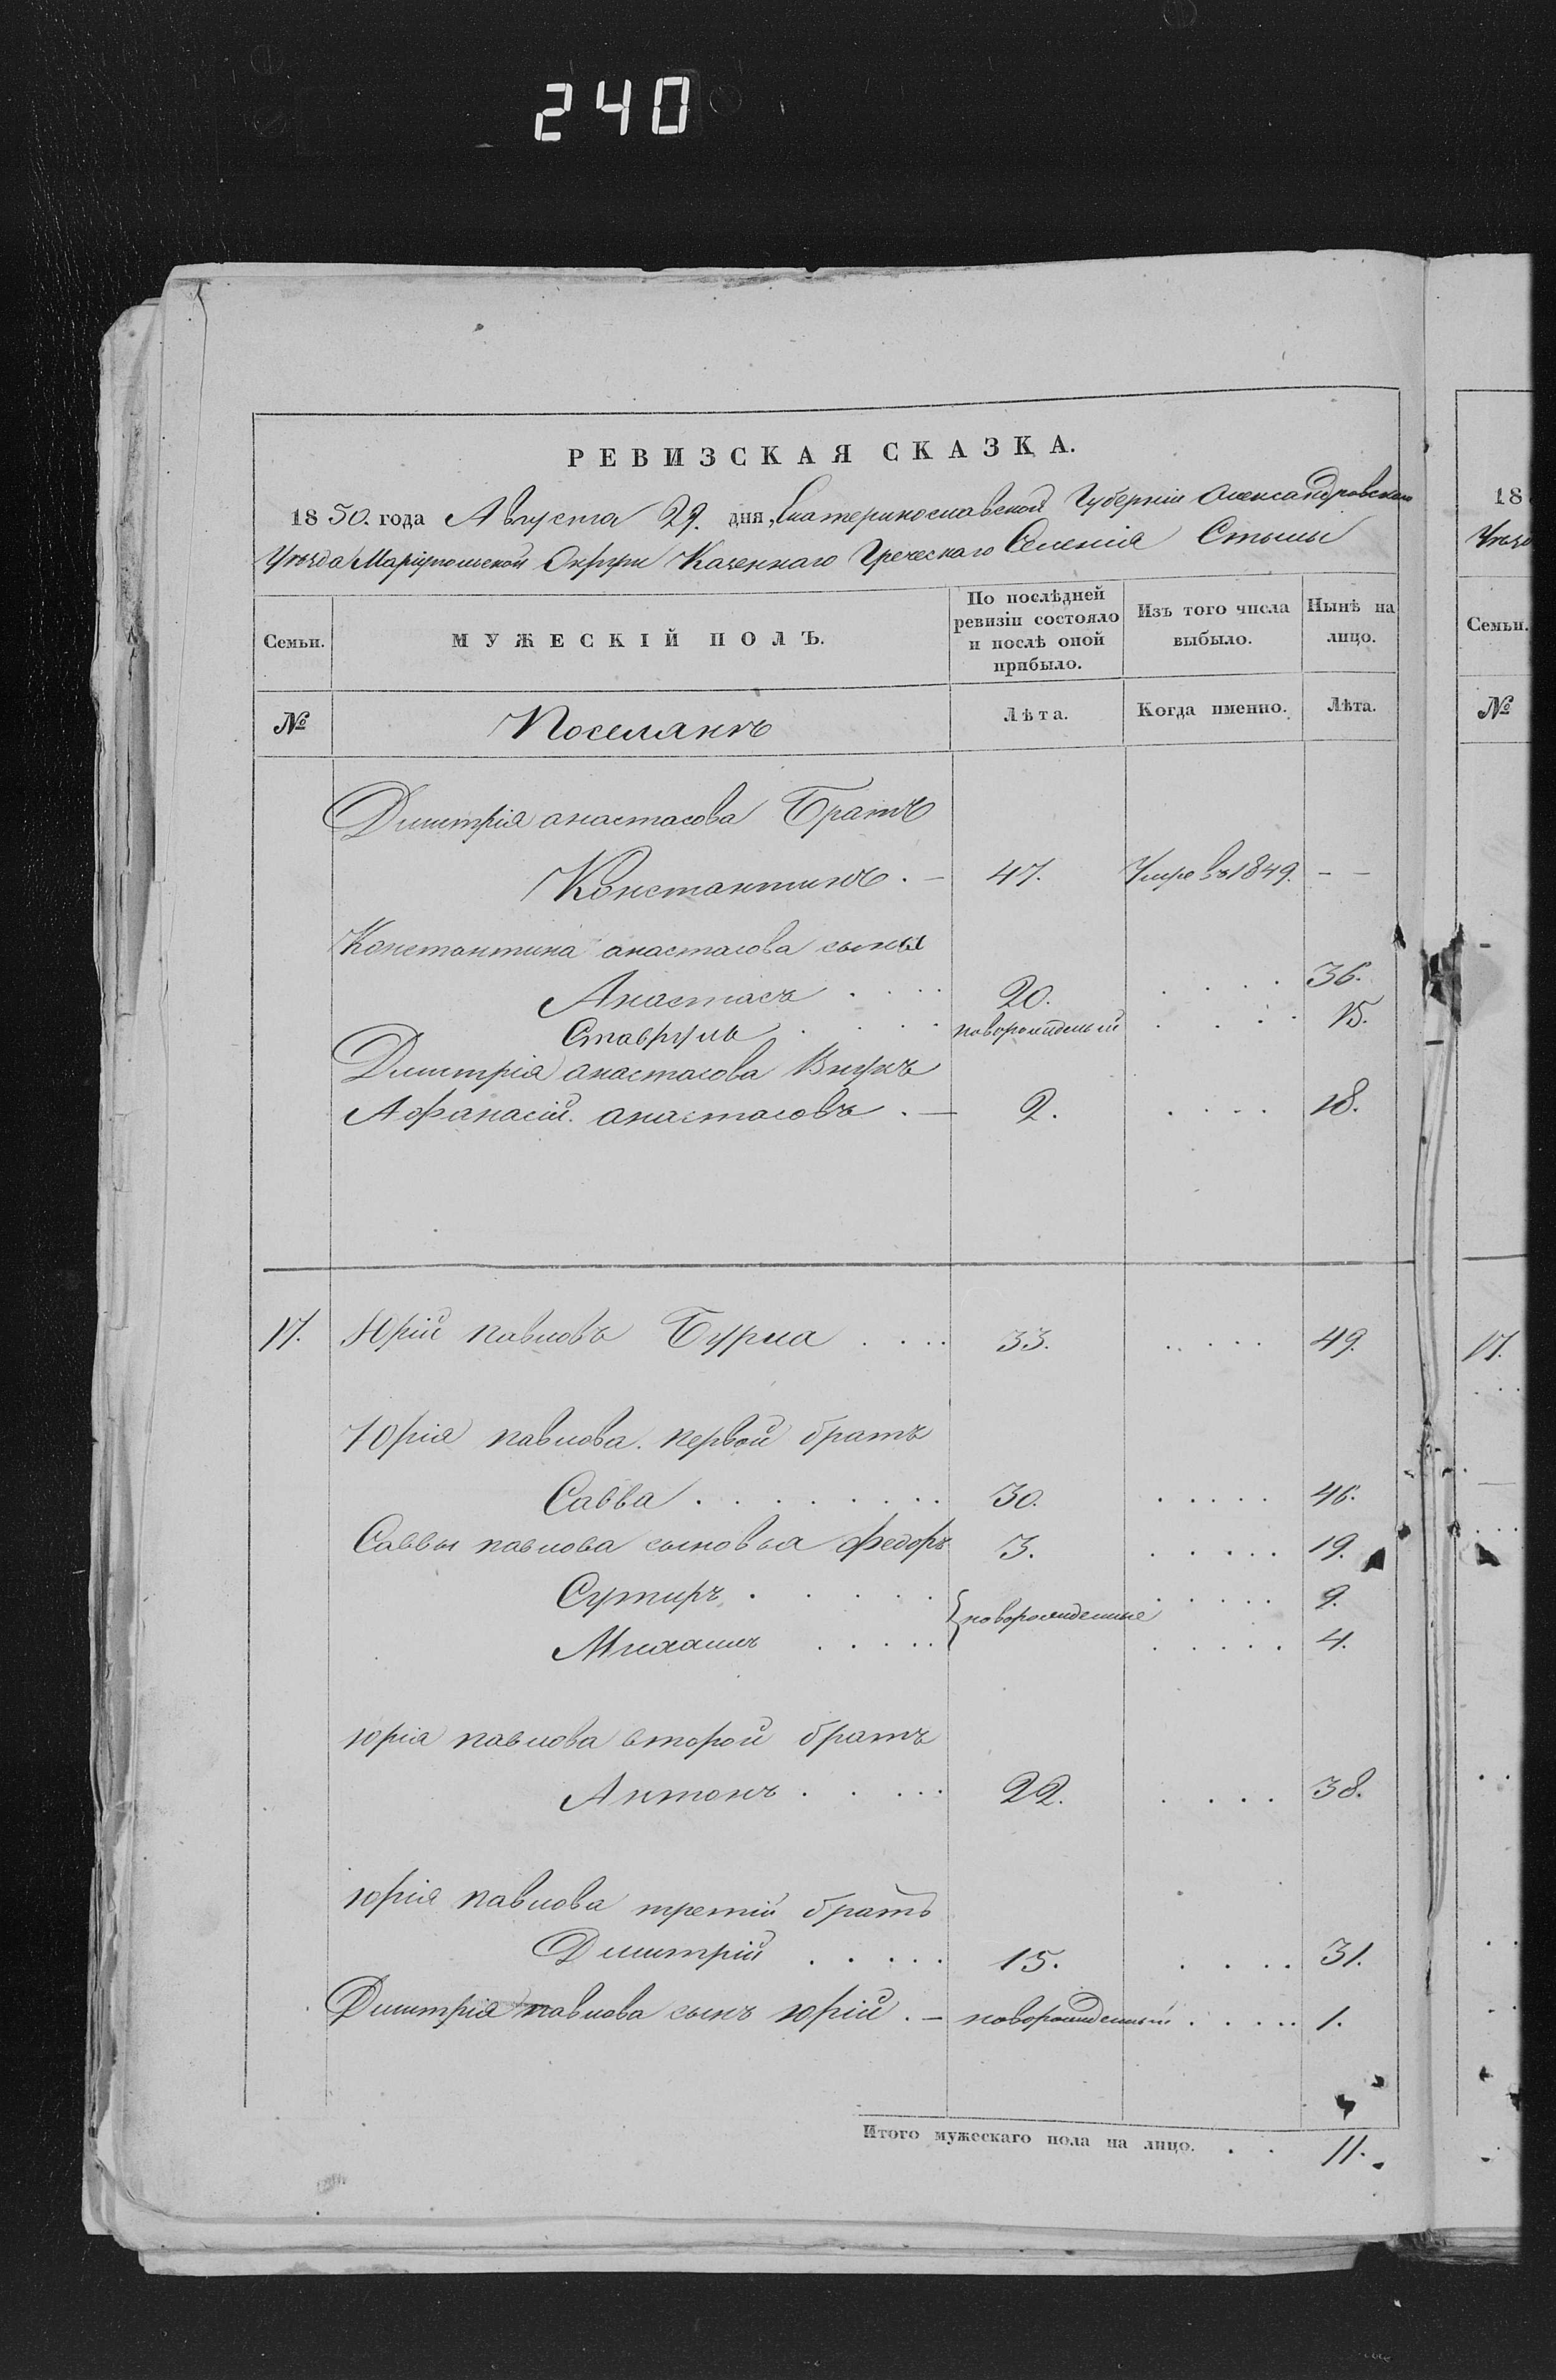 240
РЕВИЗСКАЯ СКАЗКА.
1850. года Августа 29. дня, Екатеринославской Губерніи Александровскаго
Уѣзда Маріупольской Округи Казеннаго Греческаго Селенія Стылы
Семьи. МУЖЕСКІЙ ПОЛЪ. По послѣдней ревизіи состояло и послѣ оной прибыло. Изъ того числа выбыло. Нынѣ на лицо.
№ Поселянъ Лѣта. Когда именно. Лѣта.
Дмитрія анастасова Братъ
Константинъ . — 47. Умре въ 1849. — —
Константина анастасова сыны
Анастасъ . . . . 20. . . . . 36.
Ставрулъ . . . . новорожденый . . . . 15.
Дмитрія анастасова Внукъ
Афанасій. анастасовъ . — 2. . . . . 18.
17. Юрій павловъ Бурла . . . . 33. . . . . 49.
Юрія павлова. первой братъ
Савва . . . . . . . . 30. . . . . . 46.
Саввы павлова сыновья федоръ 3. . . . . . 19.
Сутиръ . . . . . { новорожденные . . . . . 9.
Михаилъ . . . . . . . . . . 4.
юрія павлова второй братъ
Антонъ . . . . 22. . . . . 38.
юрія павлова третій братъ
Дмитрій . . . . . 15. . . . . 31.
Дмитрія павлова сынъ юрій . — новорожденный . . . . . 1.
Итого мужескаго пола на лицо. . . 11.
18
Уѣзд
Семьи.
№
17.